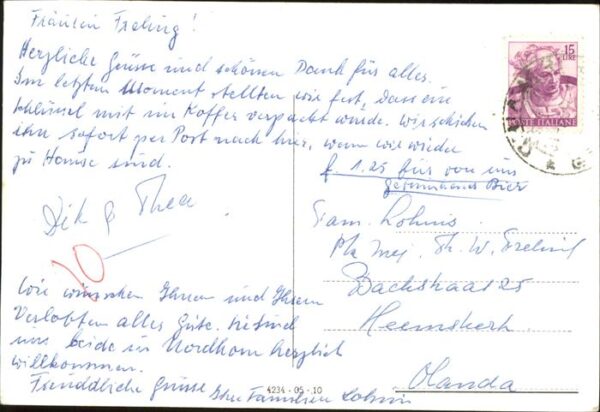 Fräulein Freling!
Herzliche Grüsse und schönen Dank für alles.
Im letzten Moment stellten wir fest, dass ein
Schlüssel mit im Koffer verpackt wurde. Wir schicken
ihn sofort per Post nach hier, wenn wir wieder
zu Hause sind.
f. 1.25 für von uns
Bier
Dik & Thea
10
Wir wünschen Ihnen und Ihrem
Verlobten alles Gute. Sie sind
uns beide in Nordhorn herzlich
willkommen.
Freundliche Grüsse Ihre Familien Lohnis
15
LIRE
POSTE ITALIANE
Fam. Lohnis.
Mej. Th. W. Freling
Bachstraat 25
Heemskerk
Olanda
4234 - 05 - 10